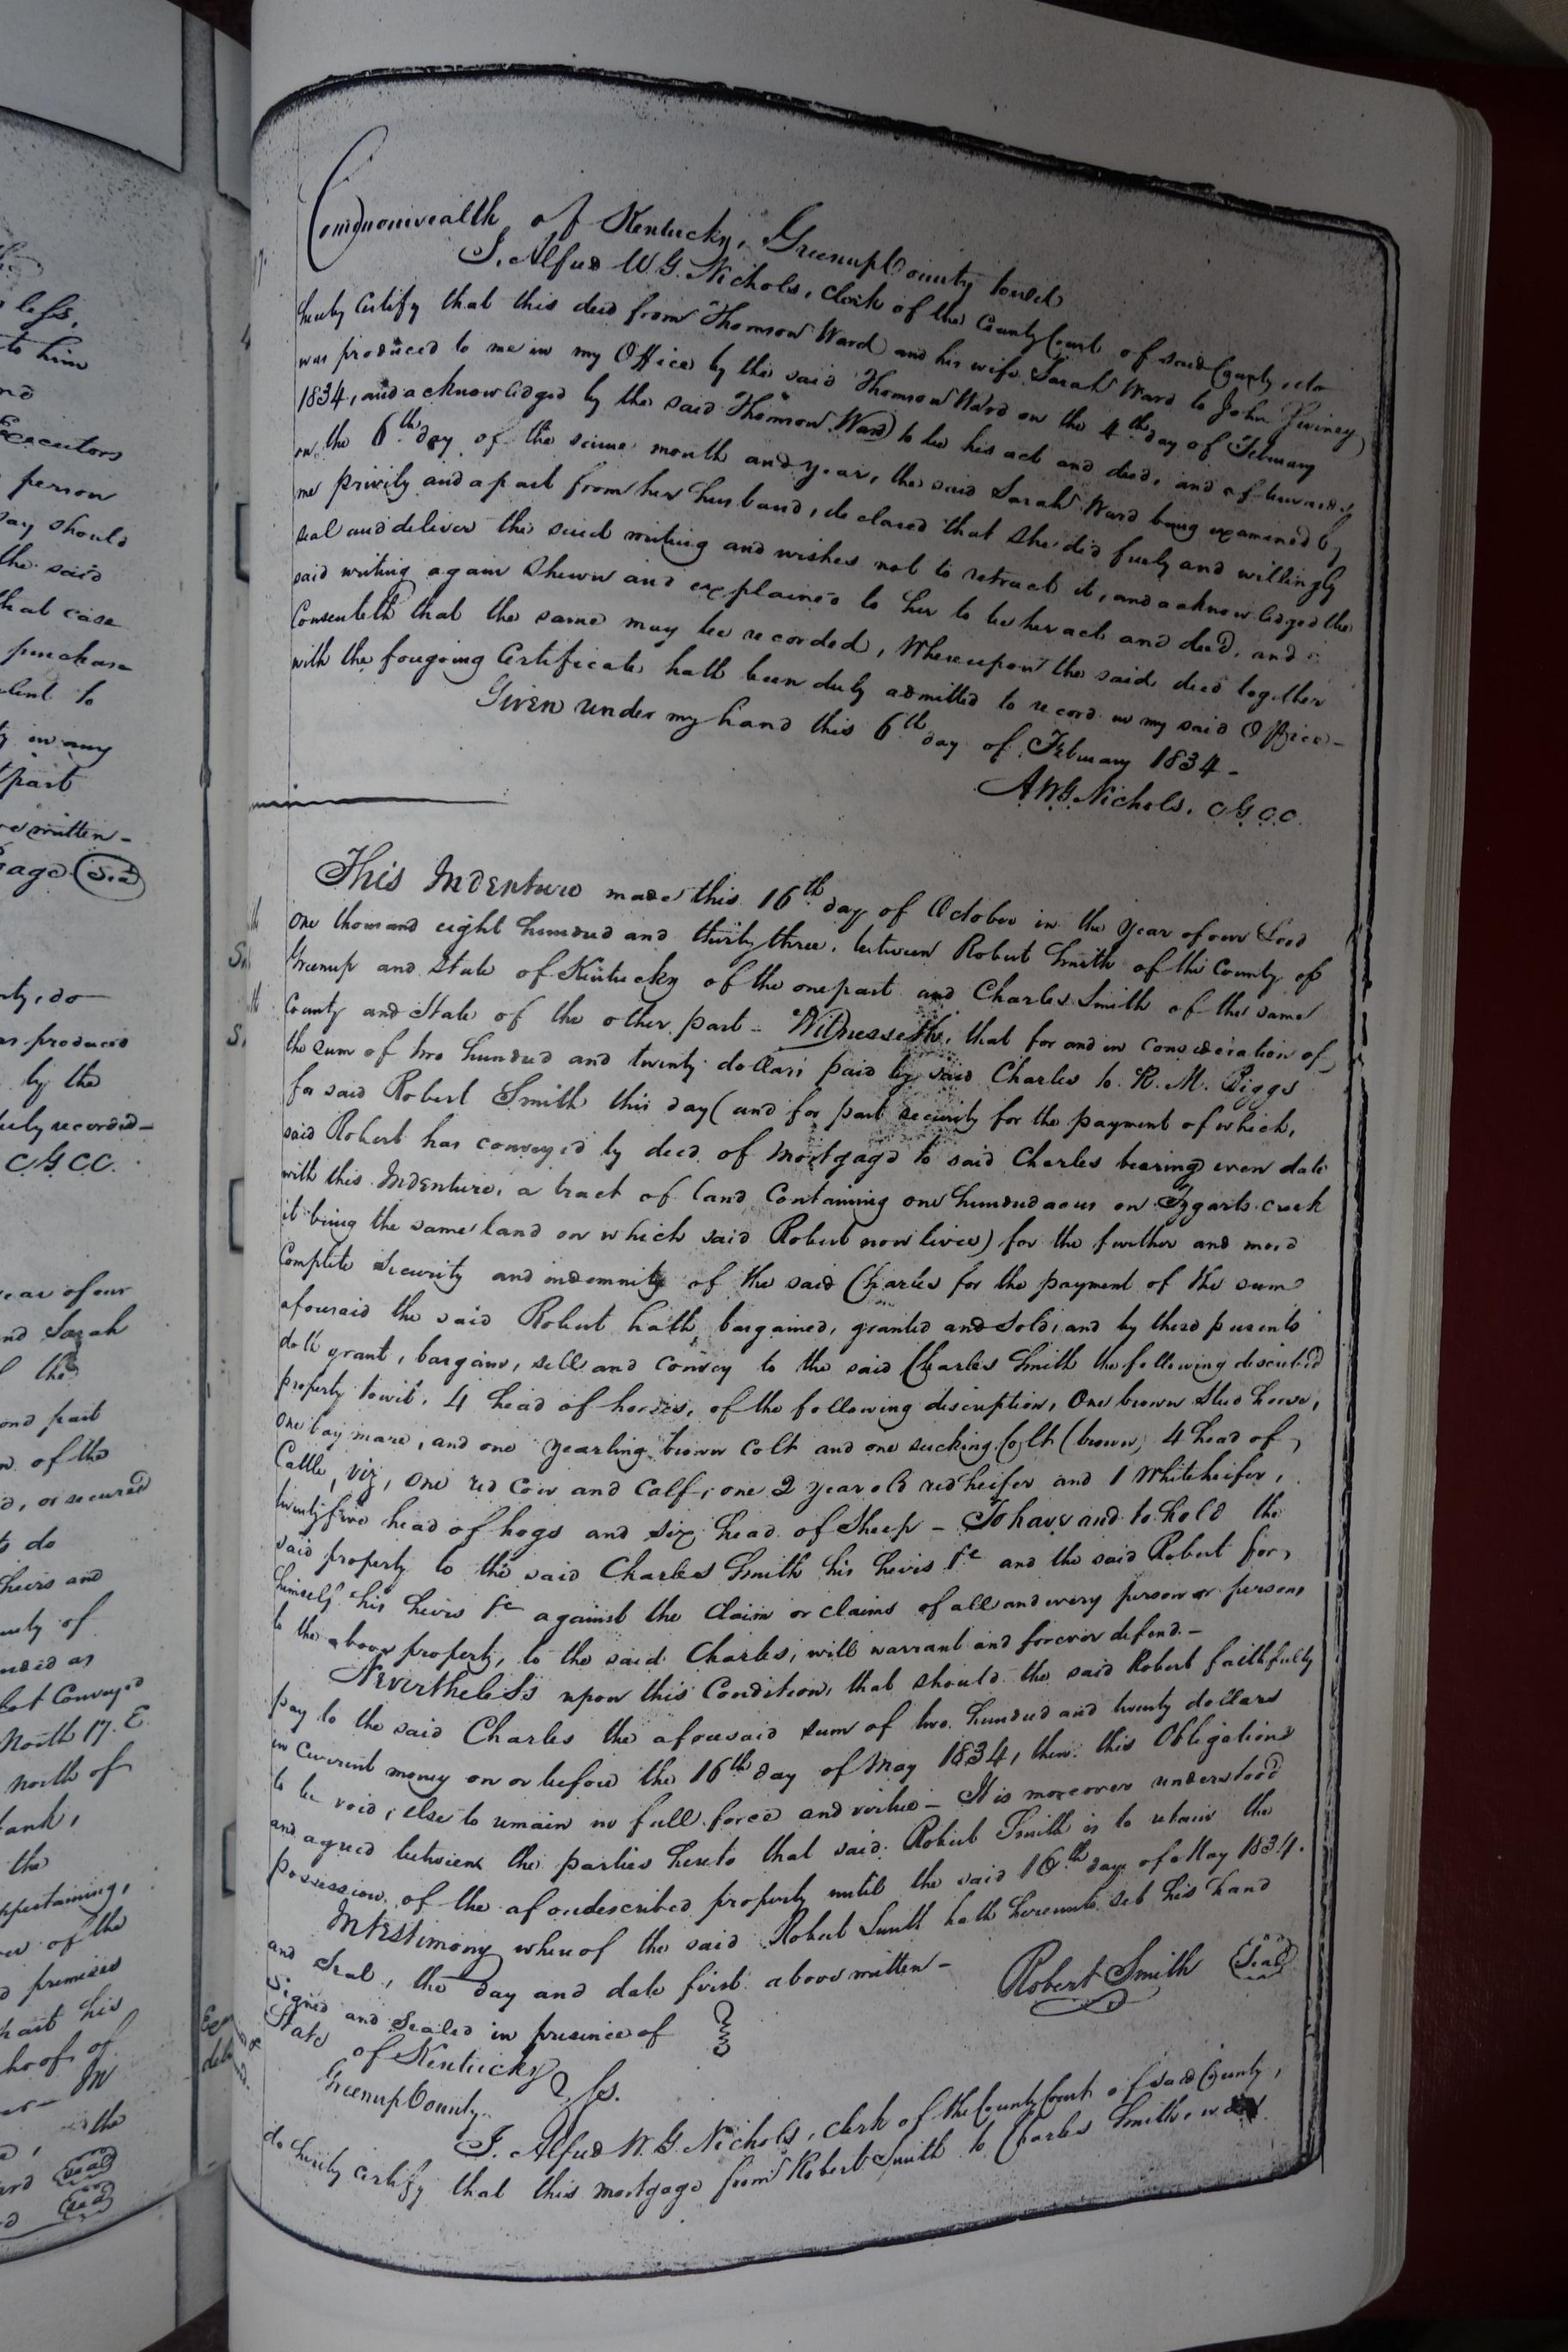 less,
to him
and
Executors
person
say should
the said
that case
purchase
in any
part
written —
(Seal)
rty, do
as produced
by the
uly recorded —
C G C C.
year of our
and Sarah
the
ond part
of the
or secured
to do
heirs and
nty of
nded as
lot Conveyed
North 17. E
north of
the
appertaining,
of the
premises
hath his
hoof of
the
(Seal)
(Seal)
Commonwealth of Kentucky, Greenup County towit
I, Alfred W. G. Nichols, Clerk of the County Court of said County, do
hereby Certify that this deed from Thomson Ward and his wife Sarah Ward to John
was produced to me in my Office by the said Thomson Ward on the 4th day of February
1834, and acknowledged by the said Thomson Ward to be his act and deed, and afterwards
on the 6th day of the same month and year, the said Sarah Ward being examined by
me privily and apart from her husband, declared that she did freely and willingly
seal and deliver the said writing and wishes not to retract it, and acknowledged the
said writing again shewn and explained to her to be her act and deed, and
Consenteth that the same may be recorded, Whereupon the said deed together
with the foregoing Certificate hath been duly admitted to record in my said Office —
Given under my hand this 6th day of February 1834 —
A W G. Nichols, C G C C.
This Indenture made this 16th day of October in the Year of our Lord
One thousand eight hundred and thirty three, between Robert Smith of the County of
Greenup and State of Kentucky of the one part and Charles Smith of the same
County and State of the other part — Witnesseth, that for and in consideration of
the sum of two hundred and twenty dollars paid by said Charles to R. M. Biggs
for said Robert Smith this day (and for part security for the payment of which,
said Robert has conveyed by deed of Mortgage to said Charles bearing even date
with this Indenture, a tract of land Containing one hundred acres on Tygarts creek
it being the same land on which said Robert now lives) for the further and more
Complete Security and indemnity of the said Charles for the payment of the sum
aforesaid the said Robert hath bargained, granted and sold, and by these presents
doth grant, bargain, sell and convey to the said Charles Smith the following described
property towit, 4 head of horses, of the following discription, One brown Stud horse,
One bay mare, and one yearling brown Colt and one sucking Colt (brown, 4 head of
Cattle, viz, one red Cow and Calf, one 2 year old red heifer and 1 White heifer,
twenty five head of hogs and six head of Sheep — To have and to hold the
said property to the said Charles Smith his heirs &c and the said Robert for
himself his heirs &c against the Claim or claims of all and every person or persons
to the above property, to the said Charles, will warrant and forever defend. —
Nevertheless upon this Condition, that should the said Robert faithfully
pay to the said Charles the aforesaid sum of two hundred and twenty dollars
in Current money on or before the 16th day of May 1834, then this Obligation
to be void, else to remain in full force and virtue — It is moreover understood
and agreed between the parties hereto that said Robert Smith is to retain the
possession of the aforedescribed property until the said 16th day of May 1834.
In testimony whereof the said Robert Smith hath hereunto set his hand
and Seal, the day and date first above written —
Robert Smith (Seal)
Signed and Sealed in presence of
State of Kentucky
Greenup County Ss.
I, Alfred W. G. Nichols, Clerk of the County Court of said County,
do hereby certify that this mortgage from Robert Smith to Charles Smith, was